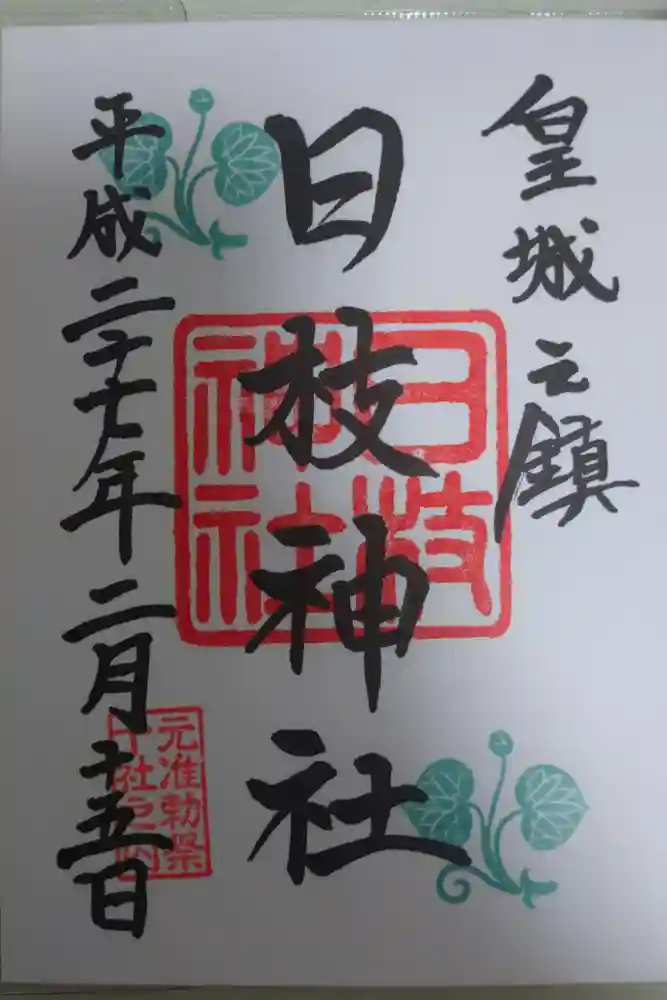 皇城之鎮
日枝神社
日枝
神社
元准勅祭
十社之内
平成二十七年二月十五日